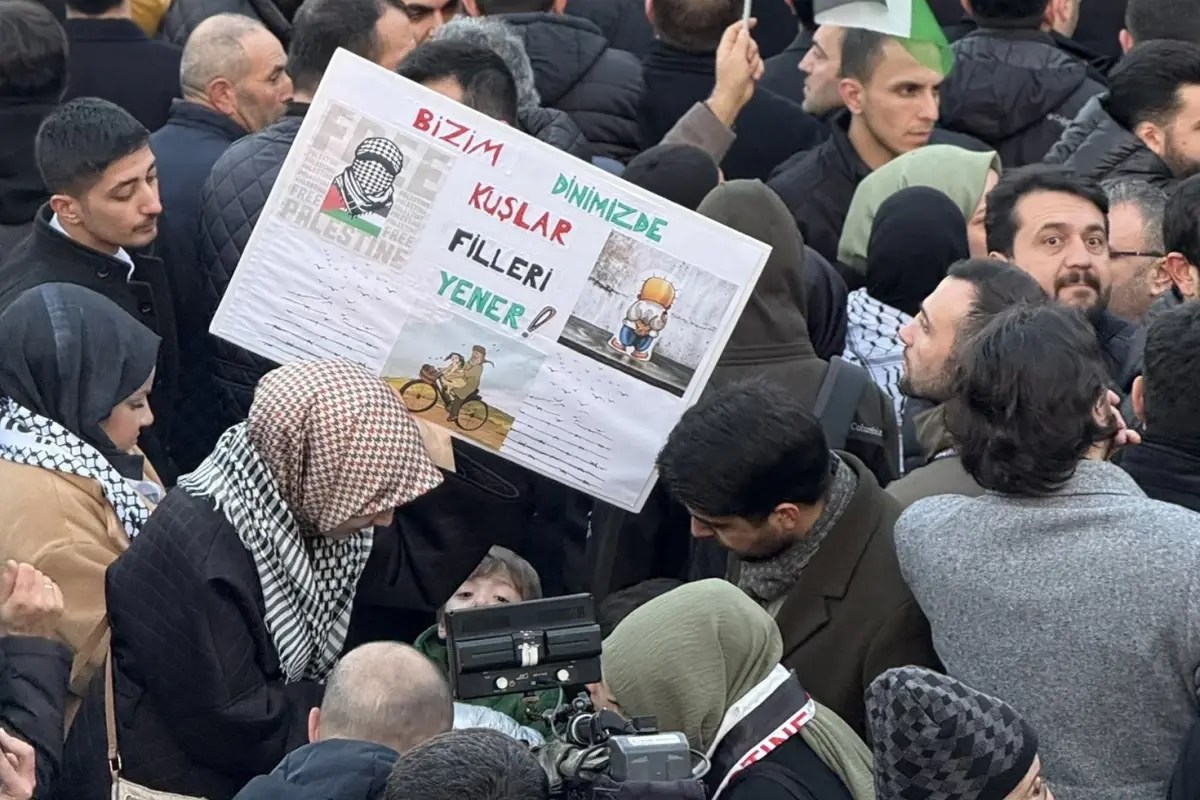 BİZİM
DİNİMİZDE
KUŞLAR
FİLLERİ
YENER!
FREE
PALESTINE
Columbia
TINE